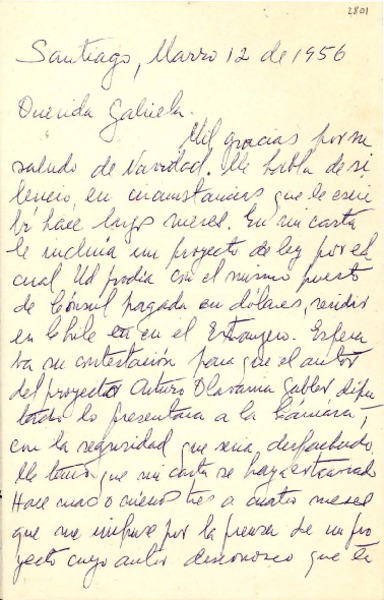 2801
Santiago, Marzo 12 de 1956
Querida Gabriela.
Mil gracias por su
saludo de Navidad. Me habla de si
lencio, en circunstancias que le escri
bí hace largos meses. En mi carta
le incluía un proyecto de ley por el
cual Ud podía con el mismo puesto
de Cónsul pagada en dólares, residir
en Chile o en el Extranjero. Espera
ba su contestación para que el autor
del proyecto Arturo Olavarria Gabler dipu
tado lo presentara a la Cámara,
con la seguridad que sería despachado.
Me temo que mi carta se haya extraviado
Hace mas o menos tres a cuatro meses
que me impuse por la prensa de un pro
yecto cuyo autor desconosco que en